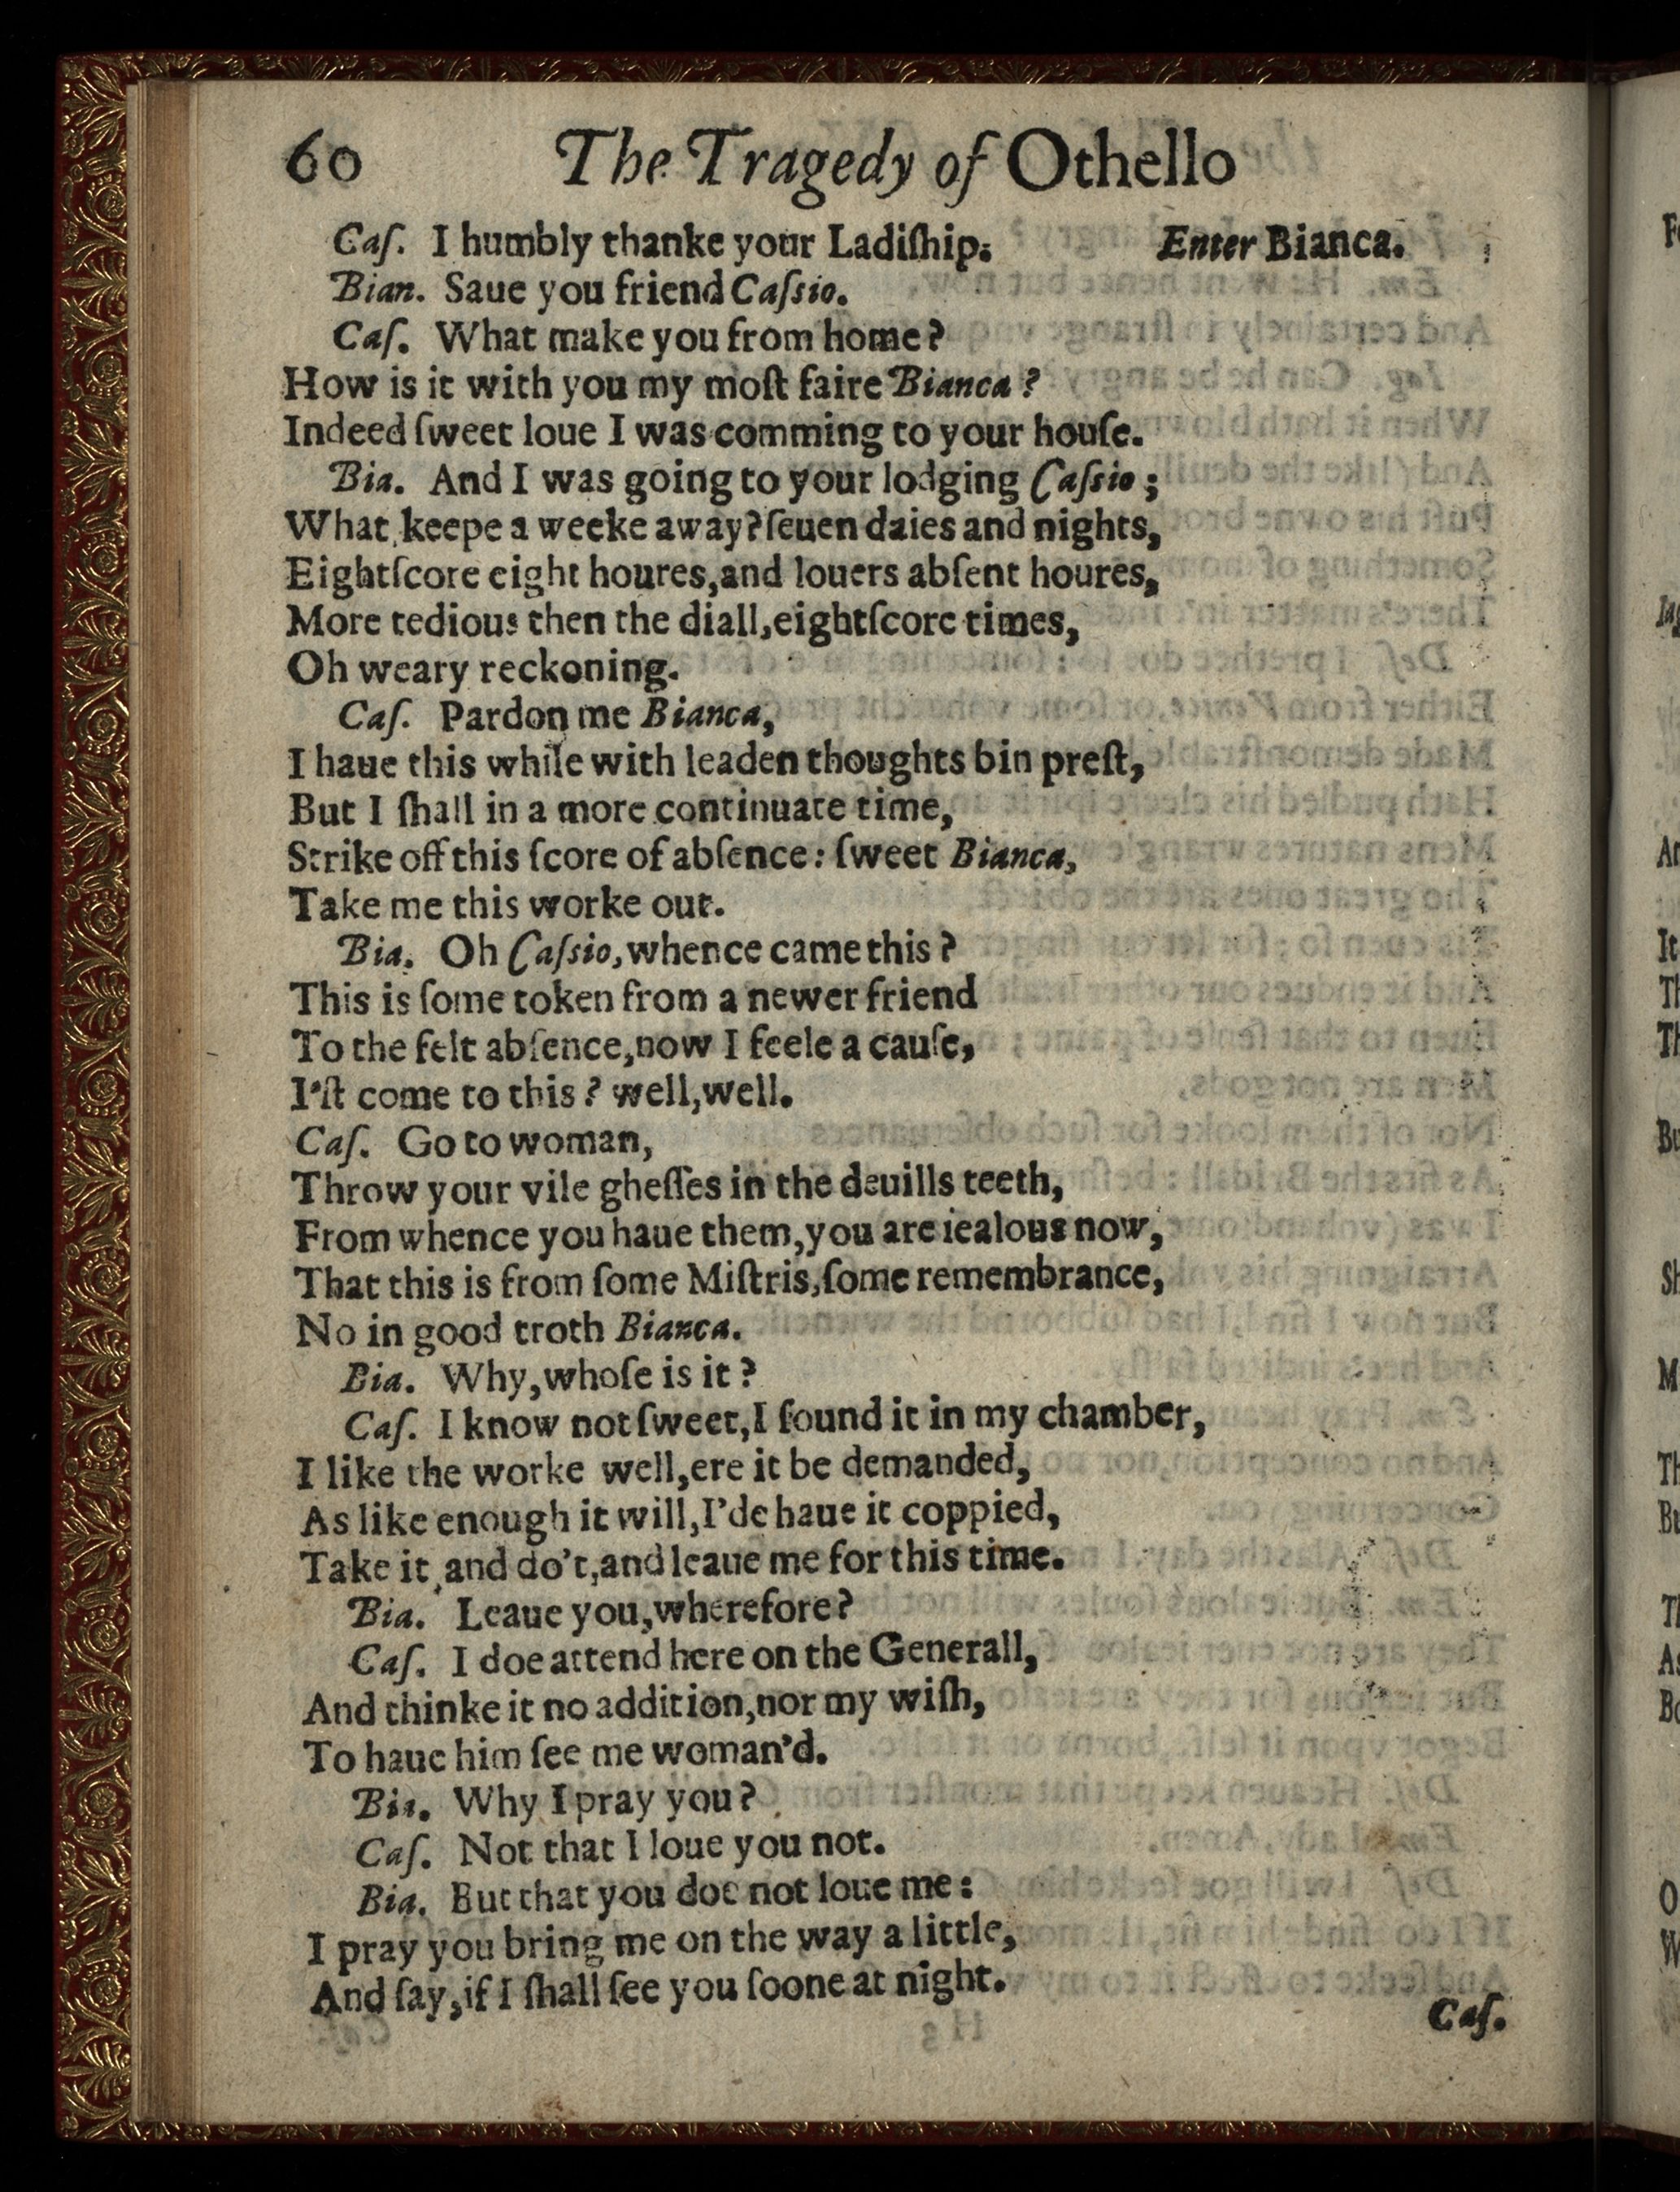 60 The Tragedy of Othello
Caſ. I humbly thanke your Ladiſhip. Enter Bianca.
Bian. Saue you friend Caſsio.
Caſ. What make you from home?
How is it with you my moſt faire Bianca?
Indeed ſweet loue I was comming to your houſe.
Bia. And I was going to your lodging Caſsio;
What keepe a weeke away? ſeuen daies and nights,
Eightſcore eight houres, and louers abſent houres,
More tedious then the diall, eightſcore times,
Oh weary reckoning.
Caſ. Pardon me Bianca,
I haue this while with leaden thoughts bin preſt,
But I ſhall in a more continuate time,
Strike off this ſcore of abſence: ſweet Bianca,
Take me this worke out.
Bia. Oh Caſsio, whence came this?
This is ſome token from a newer friend
To the felt abſence, now I feele a cauſe,
I'ſt come to this? well, well.
Caſ. Go to woman,
Throw your vile gheſſes in the deuills teeth,
From whence you haue them, you are iealous now,
That this is from ſome Miſtris, ſome remembrance,
No in good troth Bianca.
Bia. Why, whoſe is it?
Caſ. I know not ſweet, I found it in my chamber,
I like the worke well, ere it be demanded,
As like enough it will, I'de haue it coppied,
Take it, and do't, and leaue me for this time.
Bia. Leaue you, wherefore?
Caſ. I doe attend here on the Generall,
And thinke it no addition, nor my wiſh,
To haue him ſee me woman'd.
Bia. Why I pray you?
Caſ. Not that I loue you not.
Bia. But that you doe not loue me:
I pray you bring me on the way a little,
And ſay, if I ſhall ſee you ſoone at night.
Caſ.